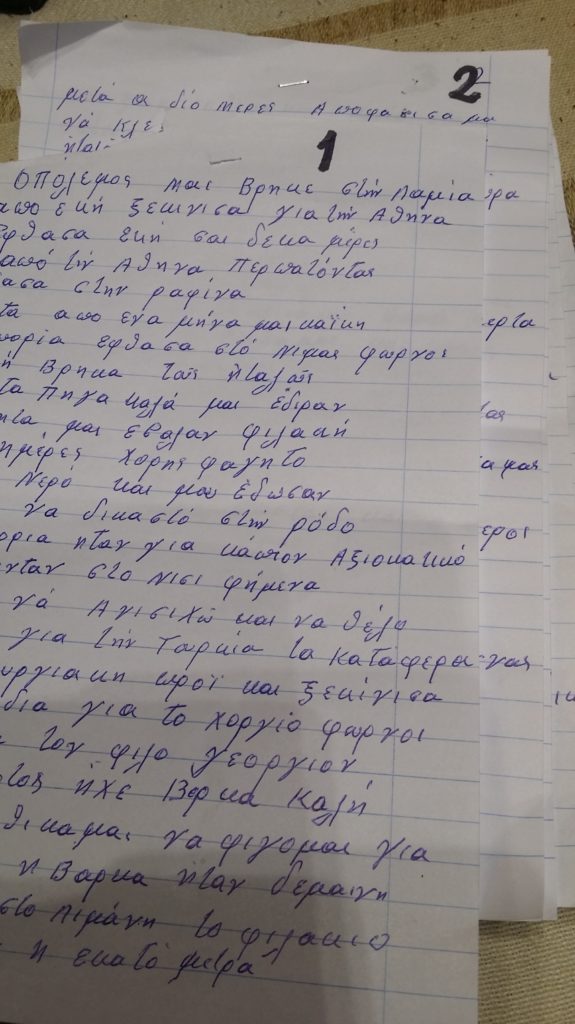 2
μετά α δίο μερες Αποφασισα μα
νά κλε
1
ΟΠόλεμος μας Βρηκε στήν Λαμία
απο εκή ξεκίνισα για τήν Αθηνα
εφθασα εκή σαι δεκα μέρες
από τήν Αθηνα περπατόντας
ασα στην ραφίνα
τα απο ενα μήνα μαι καϊκη
πορία εφθασα στό φωρνοι
ή Βρηκα τούς ηταλούς
τα πηγα καλά μαι έδιραν
ητα μαι εβαλαν φιλακή
ημέρες χορης φαγητο
Νερό και μου έδωσαν
να δικαστό στήν ρόδο
ορια ηταν για κάπιον Αξιοματικό
νταν στο νισι φήμενα
νά Ανισιχώ και να θέλο
για τήν Τουρκία τα καταφερα
υργιακη πρωϊ και ξεκίνισα
δια για το χοργιό φωρνοι
τον φιλο γεοργιον
τος ήχε Βαρκα καλή
θικαμαι να φιγομαι για
η Βαρκα ηταν δεμαινη
στο λιμάνη το φιλακιο
η εκατό μετρα
ερτα
α μας
εροι